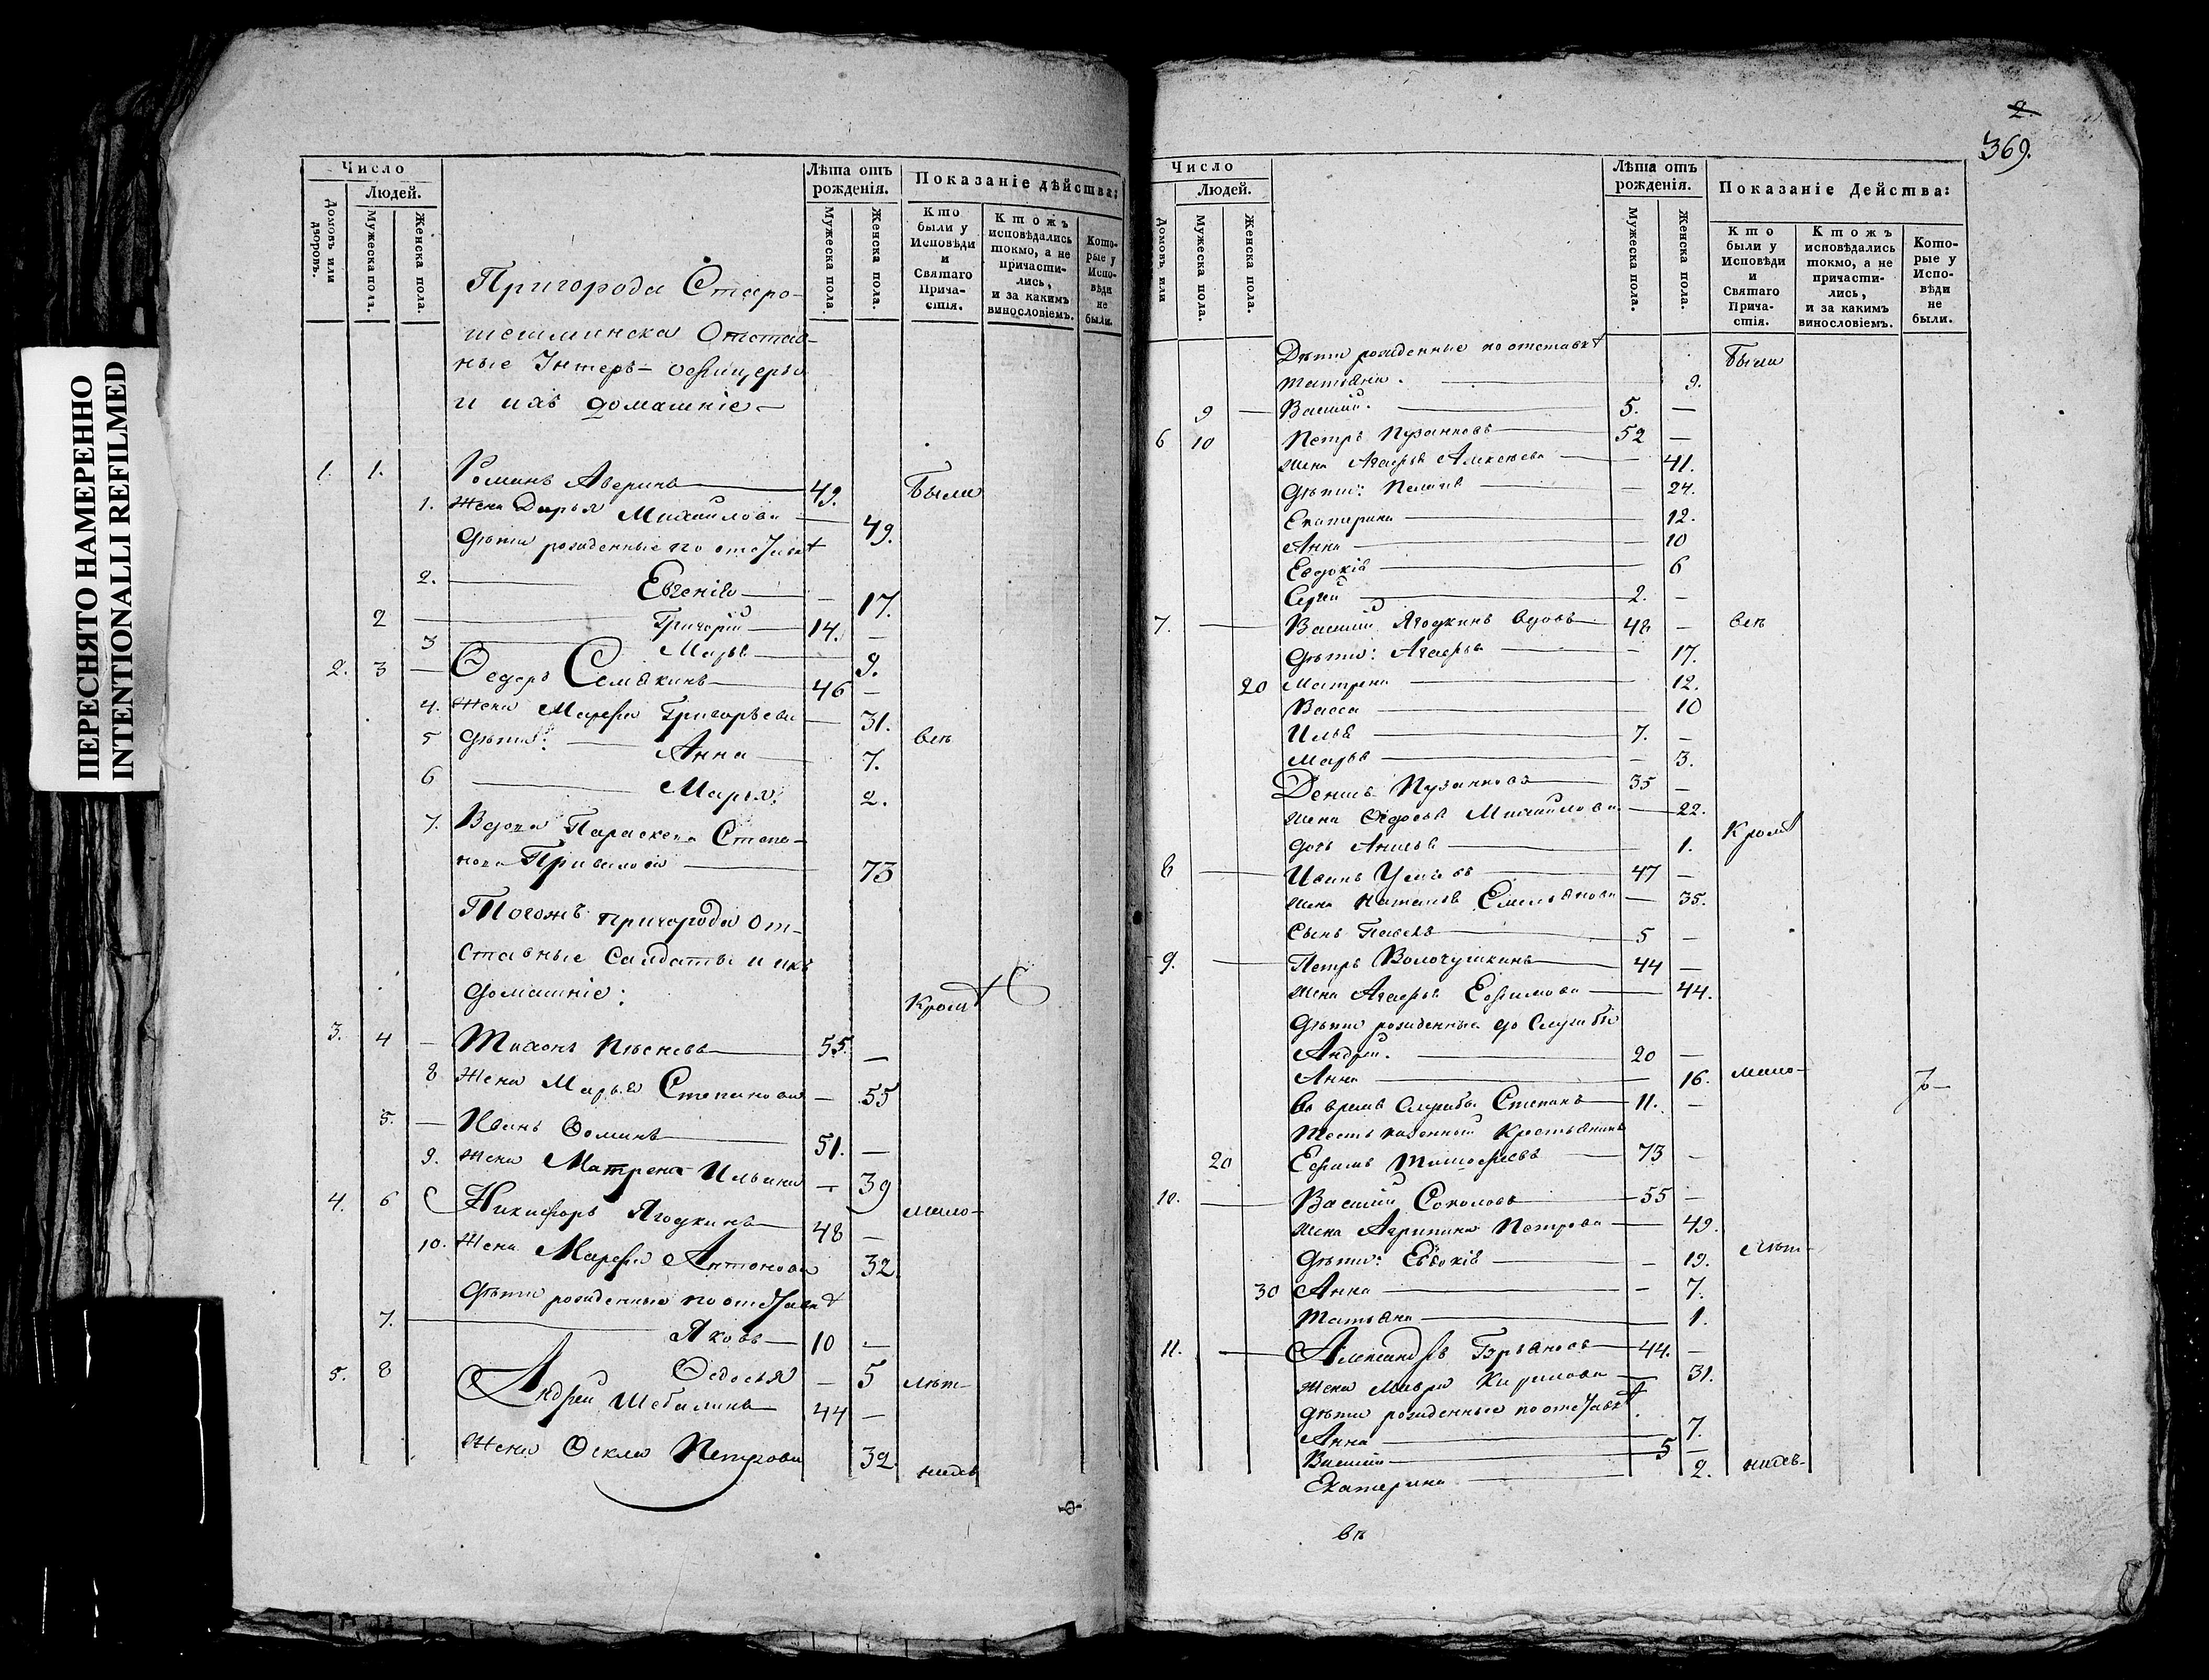 ПЕРЕСНЯТО НАМЕРЕННО
INTENTIONALLI REFILMED
Число
Людей.
Домовъ или дворовъ.
Мужеска пола.
Женска пола.
Лѣта отъ рожденія.
Мужеска пола.
Женска пола.
Показаніе дѣйства:
Кто были у Исповѣди и Святаго Причастія.
Ктожъ исповѣдались токмо, а не причастились, и за какимъ винословіемъ.
Которые у Исповѣди не были.
Пригорода Старо-
шешминска Отстав-
ные Унтеръ-офицеры
и ихъ домашніе
1. 1. Романъ Аверинъ 49. Были
1. Жена Дарья Михайлова 49.
Дѣти рожденные по отставкѣ
2. Евгенія 17.
2 Григорій 14. —
3 Марья 9.
2. 3 — Ѳедоръ Семакинъ 46 —
4. Жена Марѳа Григорьева — 31. всѣ
5 Дѣти: Анна 7.
6 Марья. 2.
7. Вдова Параскева Степа-
нова 73
Тогожъ пригорода от-
ставные Салдаты и ихъ
домашніе: Кромѣ
3. 4 — Тихонъ 55. —
8 Жена Марья Степанова — 55
5. — Иванъ Ѳоминъ 51. —
9. Жена Матрена Ильина — 39
4. 6 Никифоръ Ягодкинъ 48 — мало-
10. Жена Марѳа Антонова 32.
Дѣти рожденные по отставкѣ
7. Яковъ 10 —
Ѳедосья — 5 лѣт-
5. 8 Андрей Шебалинъ 44 —
Жена Ѳекла Петрова 32. нихъ
2.
369.
Число
Людей.
Домовъ или
Мужеска пола.
Женска пола.
Лѣта отъ рожденія.
Мужеска пола.
Женска пола.
Показаніе Действа:
Кто были у Исповѣди и Святаго Причастія.
Ктожъ исповѣдались токмо, а не причастились, и за какимъ винословіемъ.
Которые у Исповѣди не были.
Дѣти рожденные по отставкѣ Были
Татьяна. 9.
9 — Василій. 5. —
6 10 Петръ Пузанковъ 52 —
Жена Агафья Алексѣева 41.
Дѣти: — 24.
Екатерина 12.
Анна 10
Евдокія 6
Сергей 2. —
7. — Василій Ягодкинъ вдовъ 48 — всѣ
Дѣти: Агафья — 17.
20 Матрена 12.
Васса 10
Илья 7. —
Марья — 3.
Денисъ Пузанковъ 35 —
Жена Ѳедосья Михайлова 22.
дочь 1. Кромѣ
8 — Иванъ 47 —
Жена Наталья Емельянова — 35.
Сынъ Павелъ 5 —
9. — Петръ Волочушкинъ 44 —
Жена Агафья Ефимова 44.
Дѣти рожденные до Службы
Андрей. 20 —
Анна 16. мало-
Во время Службы Степанъ 11. —
Тесть казенный Крестьянинъ
20 Ефимъ Тимофеевъ 73 —
10. — Василій Соколовъ 55 —
Жена Агрипина Петрова 49.
Дѣти: Евдокія — 19. лѣт-
30 Анна — 7.
Татьяна 1.
11. — Александръ 44. —
Жена Мавра Кирилова 31.
Дѣти рожденные по отставкѣ
Анна 7.
Василій 5 —
Екатерина 2. нихъ-
въ